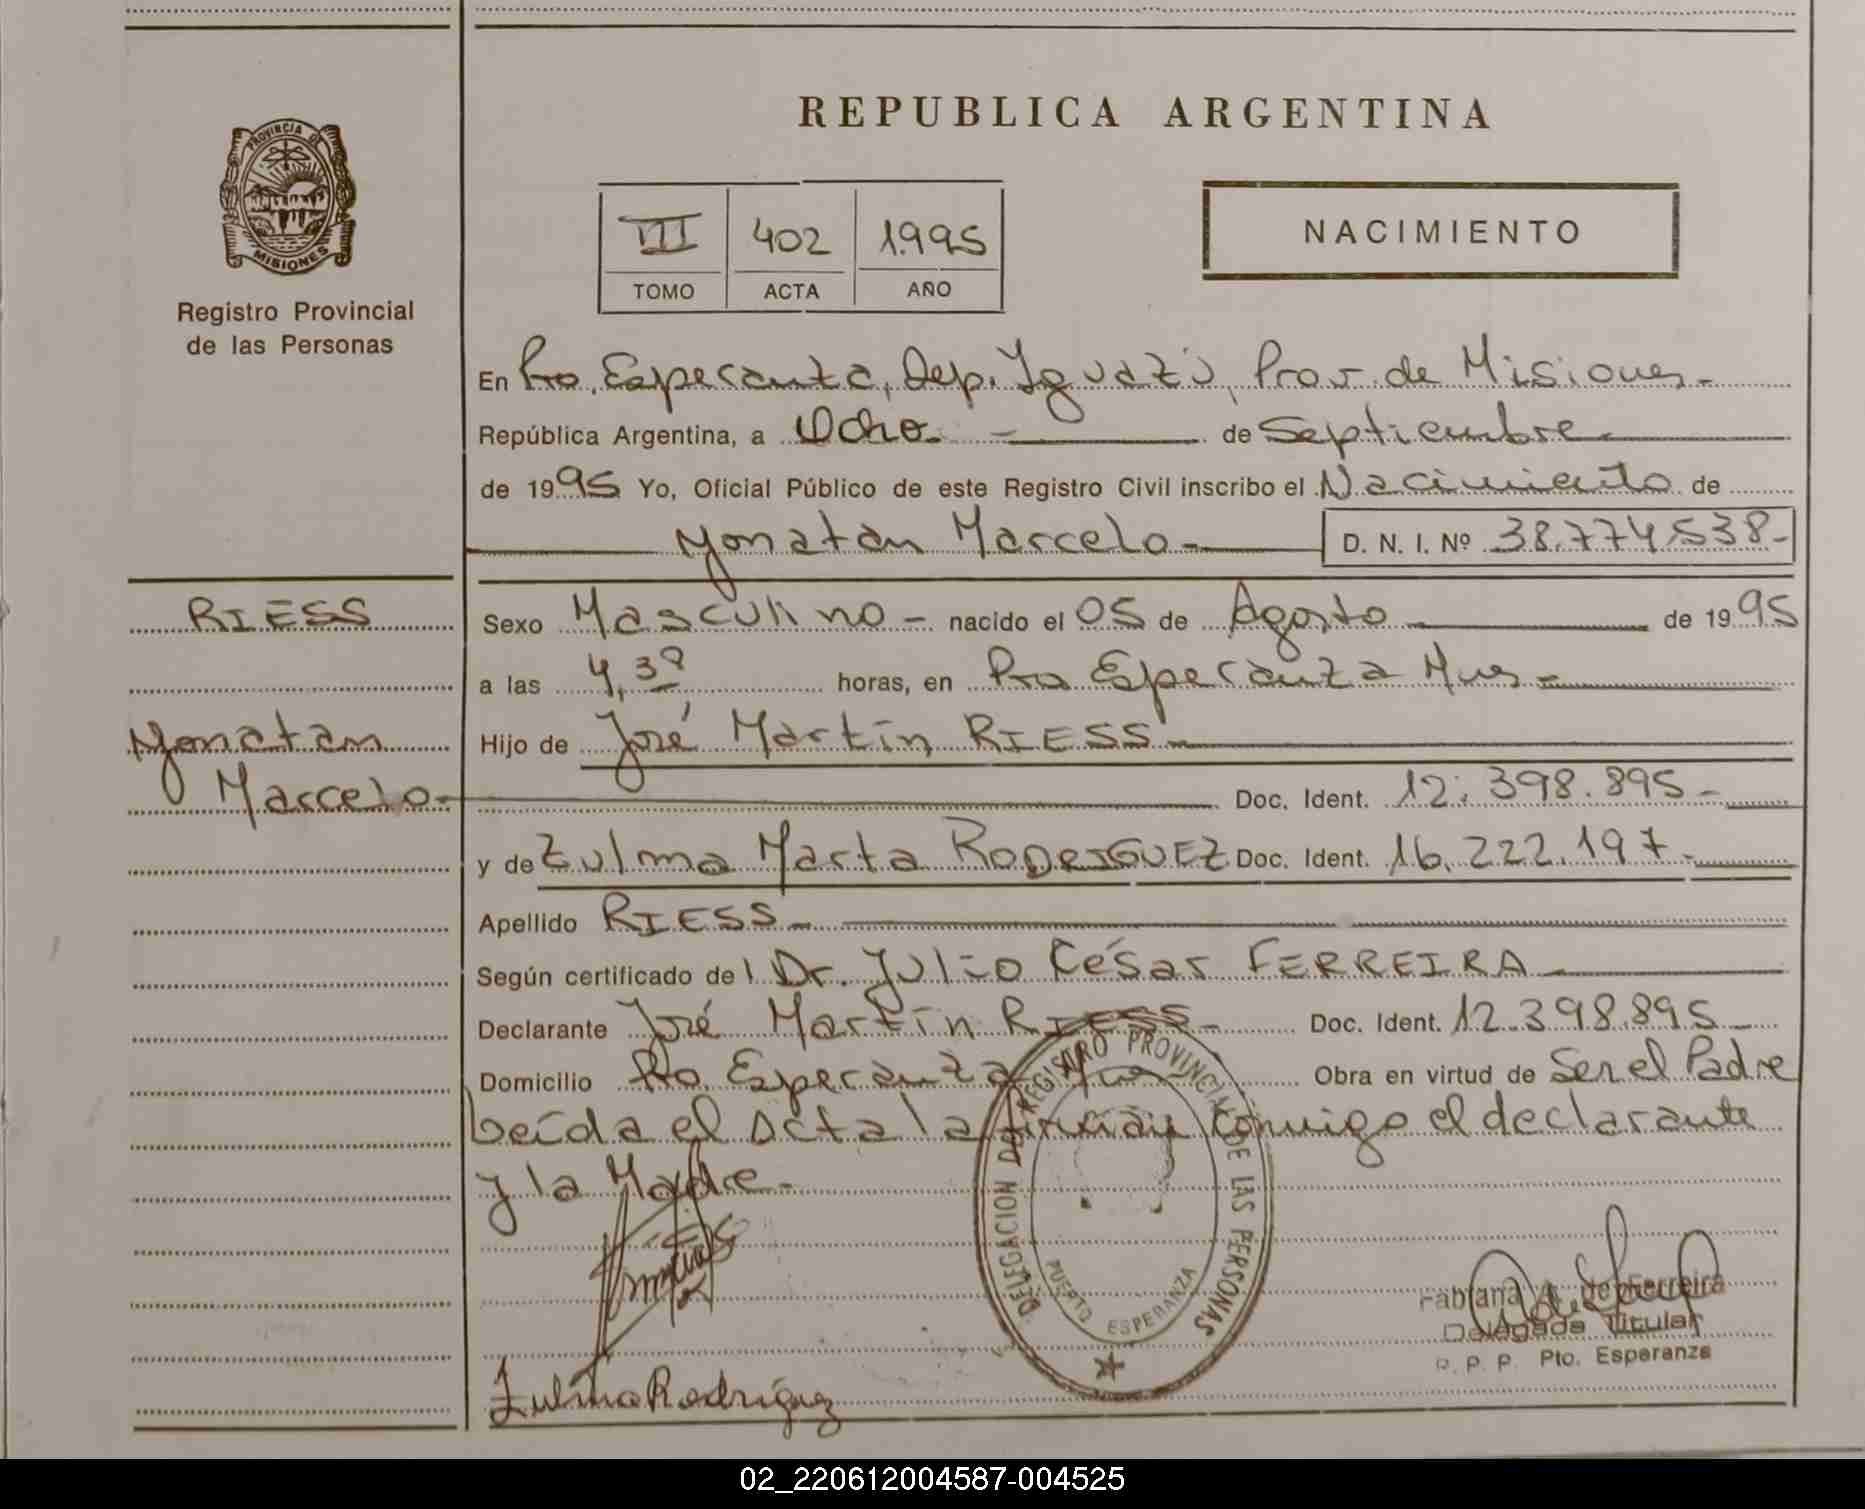 REPUBLICA ARGENTINA
PROVINCIA DE
MISIONES
Registro Provincial
de las Personas
III 402 1.995
TOMO ACTA AÑO
NACIMIENTO
En Pto. Esperanza, Dep. Iguazú, Prov. de Misiones.-
República Argentina, a Ocho.- de Septiembre.
de 1995 Yo, Oficial Público de este Registro Civil inscribo el Nacimiento de
Yonatan Marcelo.- D. N. I. Nº 38.774.538-
RIESS
Yonatan
Marcelo.-
Sexo Masculino - nacido el 05 de Agosto de 1995
a las 4,30 horas, en Pto Esperanza Mnes.-
Hijo de José Martín RIESS.-
Doc. Ident. 12.398.895-
y de Zulma Marta RODRIGUEZ Doc. Ident. 16.222.197.-
Apellido RIESS.-
Según certificado del Dr. Julio César FERREIRA.-
Declarante José Martín RIESS- Doc. Ident. 12.398.895-
Domicilio Pto. Esperanza Mnes Obra en virtud de Ser el Padre
Leída el acta la firman conmigo el declarante
y la Madre.-
DELEGACION DEL REGISTRO PROVINCIAL DE LAS PERSONAS
PUERTO ESPERANZA
Fabiana de Ferreira
Delegada Titular
R. P. P. Pto. Esperanza
Zulma Rodríguez
02_220612004587-004525